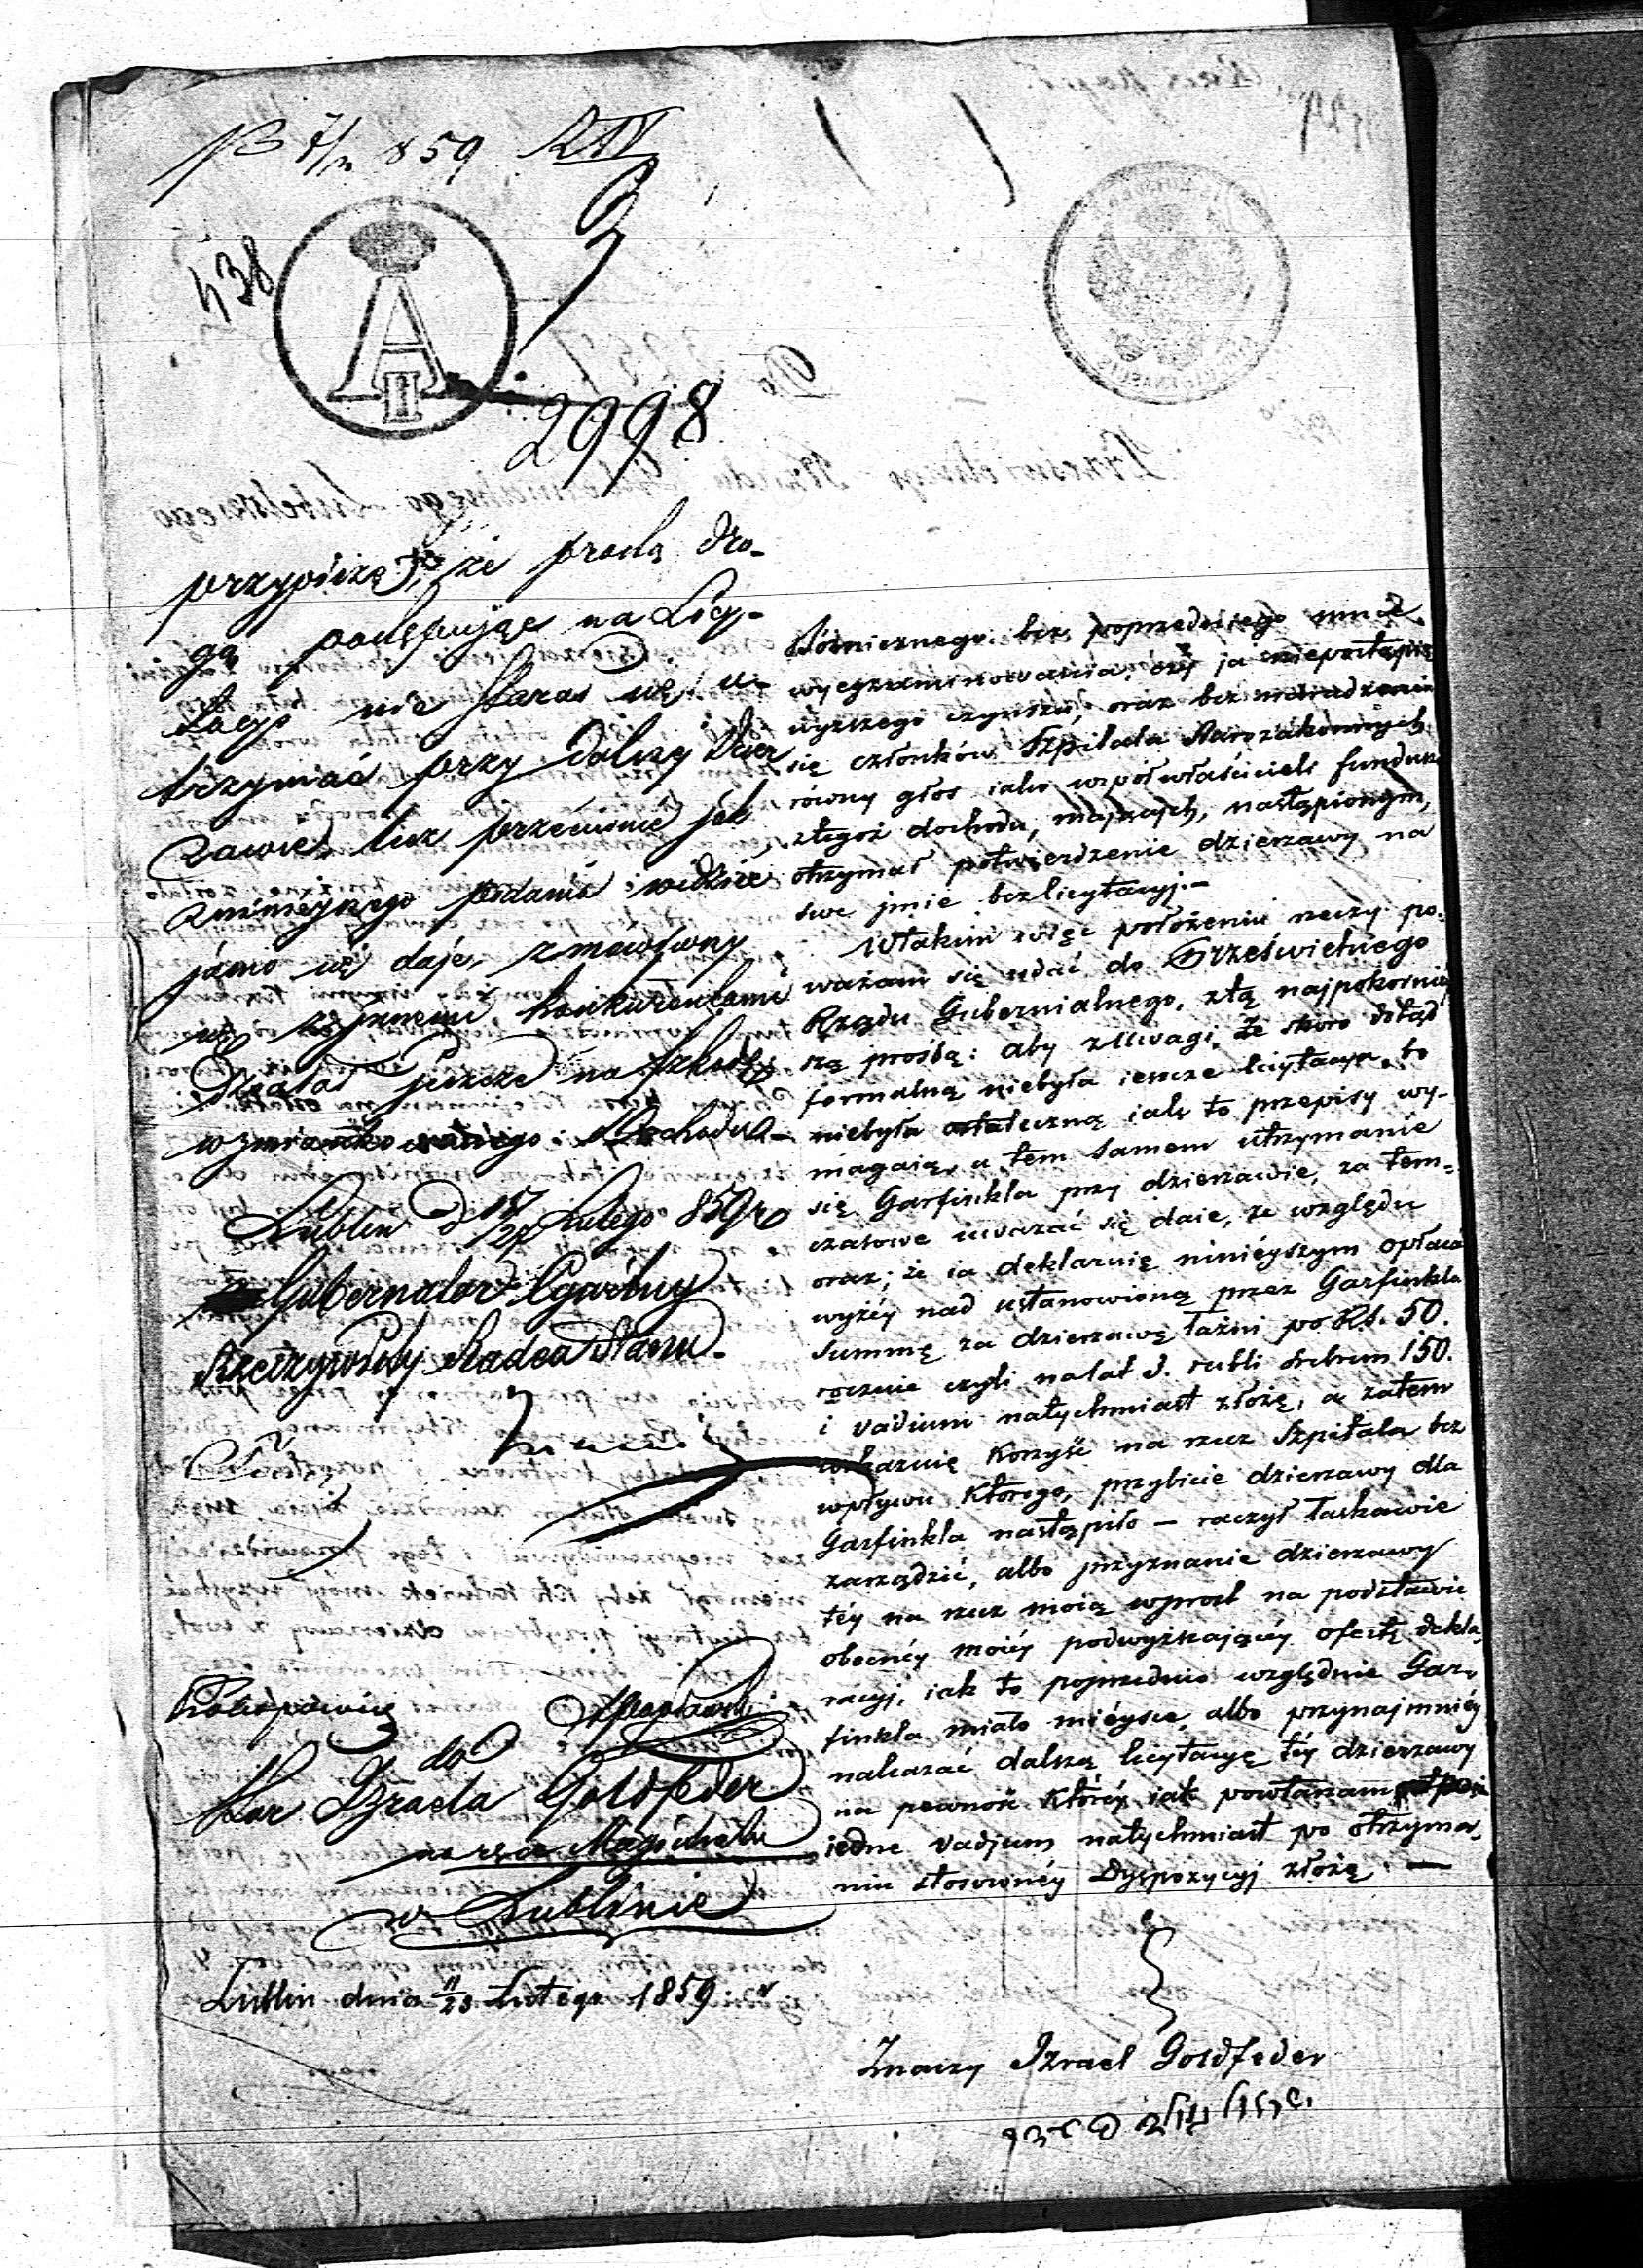 859
438
A
II
2998
przypiszę, że Pan tą dro-
gą postępując na Licy-
tacyo nie starał się u-
trzymać przy dalszey Dzier
zawie, lecz przeciwnie jak
z niniejszego podania widzieć
jasno się daje, zmówiwszy
się z innemi konkurentami
działał jeszcze na szkodę
wzmiankowanego Dochodu.-
Lublin d 15/27 Lutego 859 r
Gubernator Cywilny
Rzeczywisty Radca Stanu.
do
Star Izraela Goldfeder
na ręce Magistratu
w Lublinie
Lublin dnia 11/23 Lutego 1859 r
bez poprzedniego mnie
wyegzaminowania, czy ja niepostąpię
wyższego czynszu, oraz bez naradzenia
się członków Szpitala Starozakonnych
równy głos iako współwłaścicieli funduszu
z tegoż dochodu, mających, nastąpionym,
otrzymał potwierdzenie dzierzawy na
swe jmie bez licytacyj.-
W takim więc położeniu rzeczy po-
ważam się udać do Prześwietnego
Rządu Gubernialnego, z tą najpokorniey
szą prośbą: aby z uwagi, że skoro dotąd
formalną niebyła ieszcze licytacya, to
niebyła ostateczną iak to przepisy wy-
magaią, a tem samem utrzymanie
się Garfinkla przy dzierzawie, za tem-
czasowe uważać się daie, ze względu
oraz, że ia deklaruię niniéyszym opłacać
wyżéy nad ustanowioną przez Garfinkla
Summę za dzierzawę łaźni po Rs. 50.
rocznie czyli na lat 3. rubli srebrem 150.
i vadium natychmiast złożę, a zatem
wskazuię korzyść na rzecz Szpitala bez
wpływu którego, przybicie dzierzawy dla
Garfinkla nastąpiło — raczył łaskawie
zarządzić, albo przyznanie dzierzawy
téy na rzecz moią wprost na podstawie
obecnéy moiéy podwyższaiącéy ofertę dekla-
racyj, iak to poprzednio względnie Gar-
finkla miało miéysce, albo przynajmniéy
nakazać dalszą licytacyę téy dzierzawy
na pewność któréy iak powtarzam
iedne vadjum natychmiast po otrzyma-
niu stosownéy Dyspozycyj złożę. —
Znaczy Izrael Goldfeder